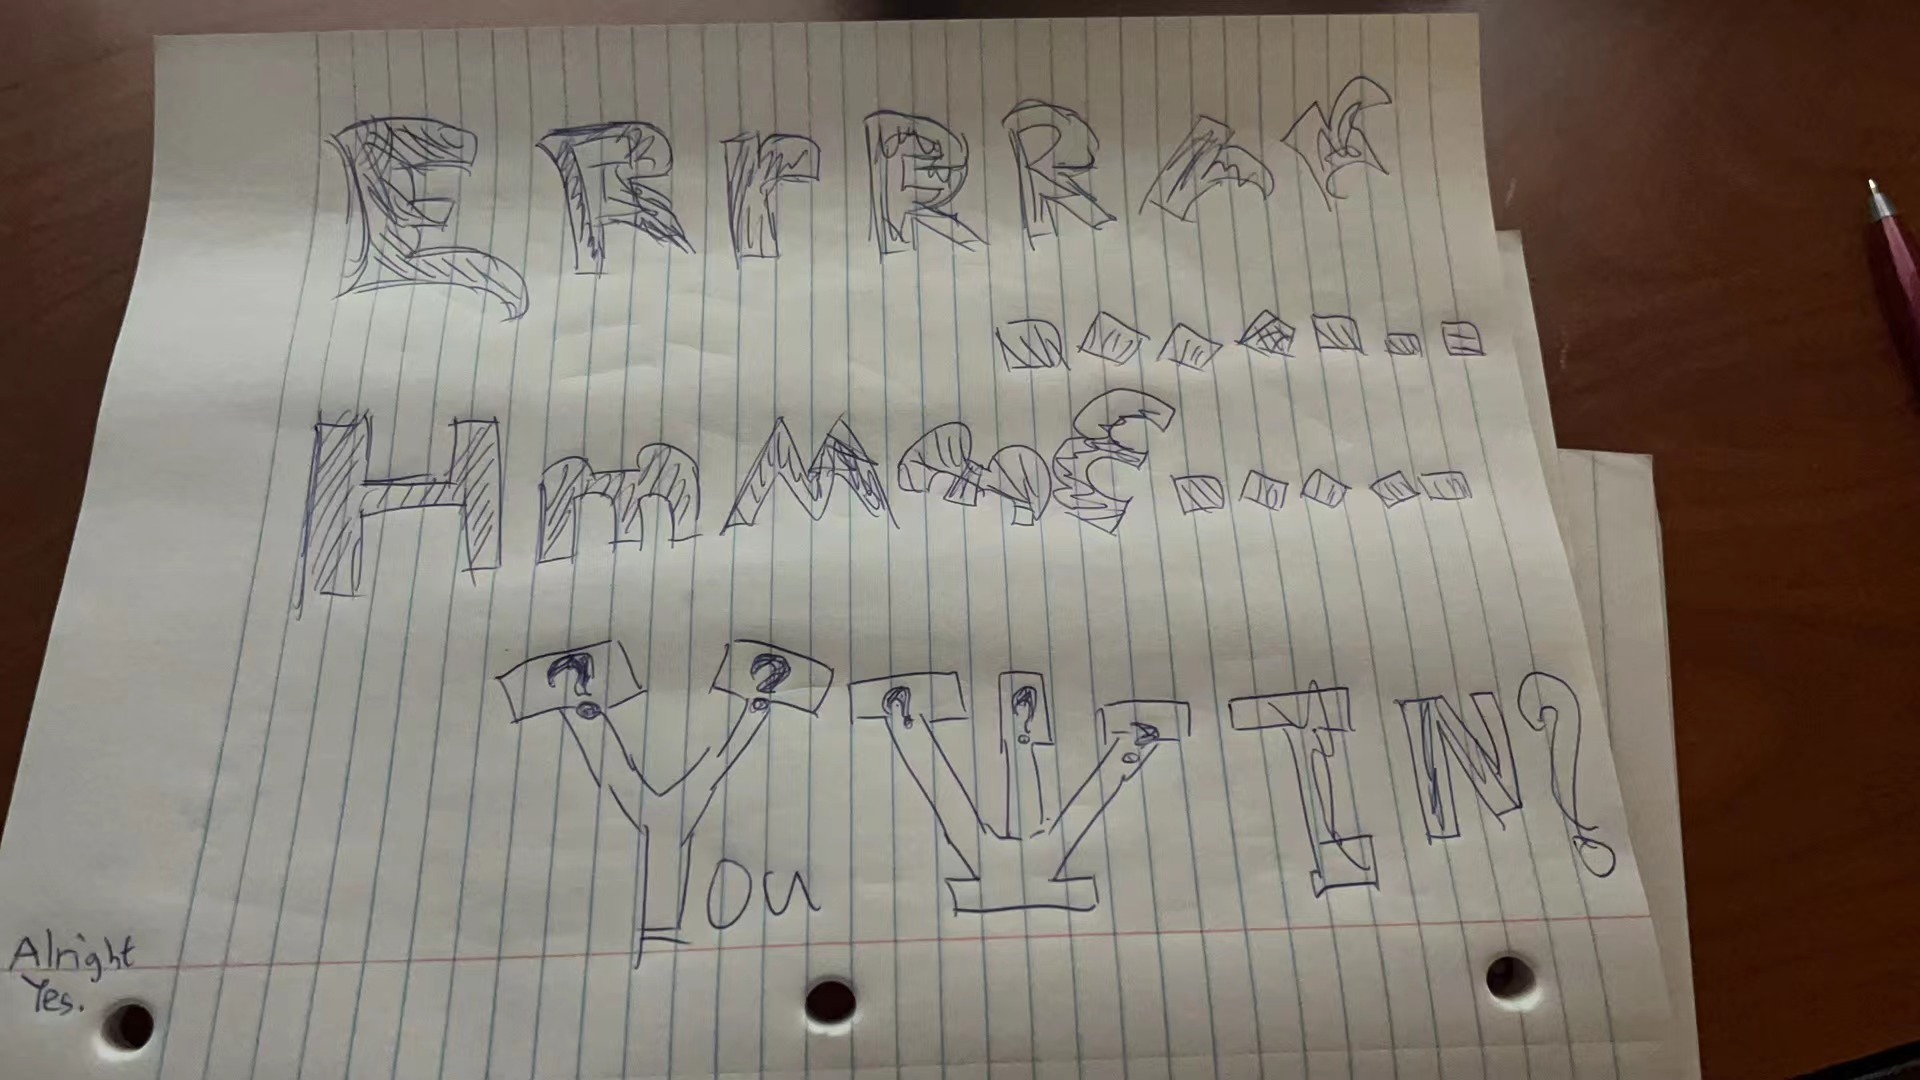 ERrRRrr
.......
HmMmm.....
You IN?
Alright
Yes.